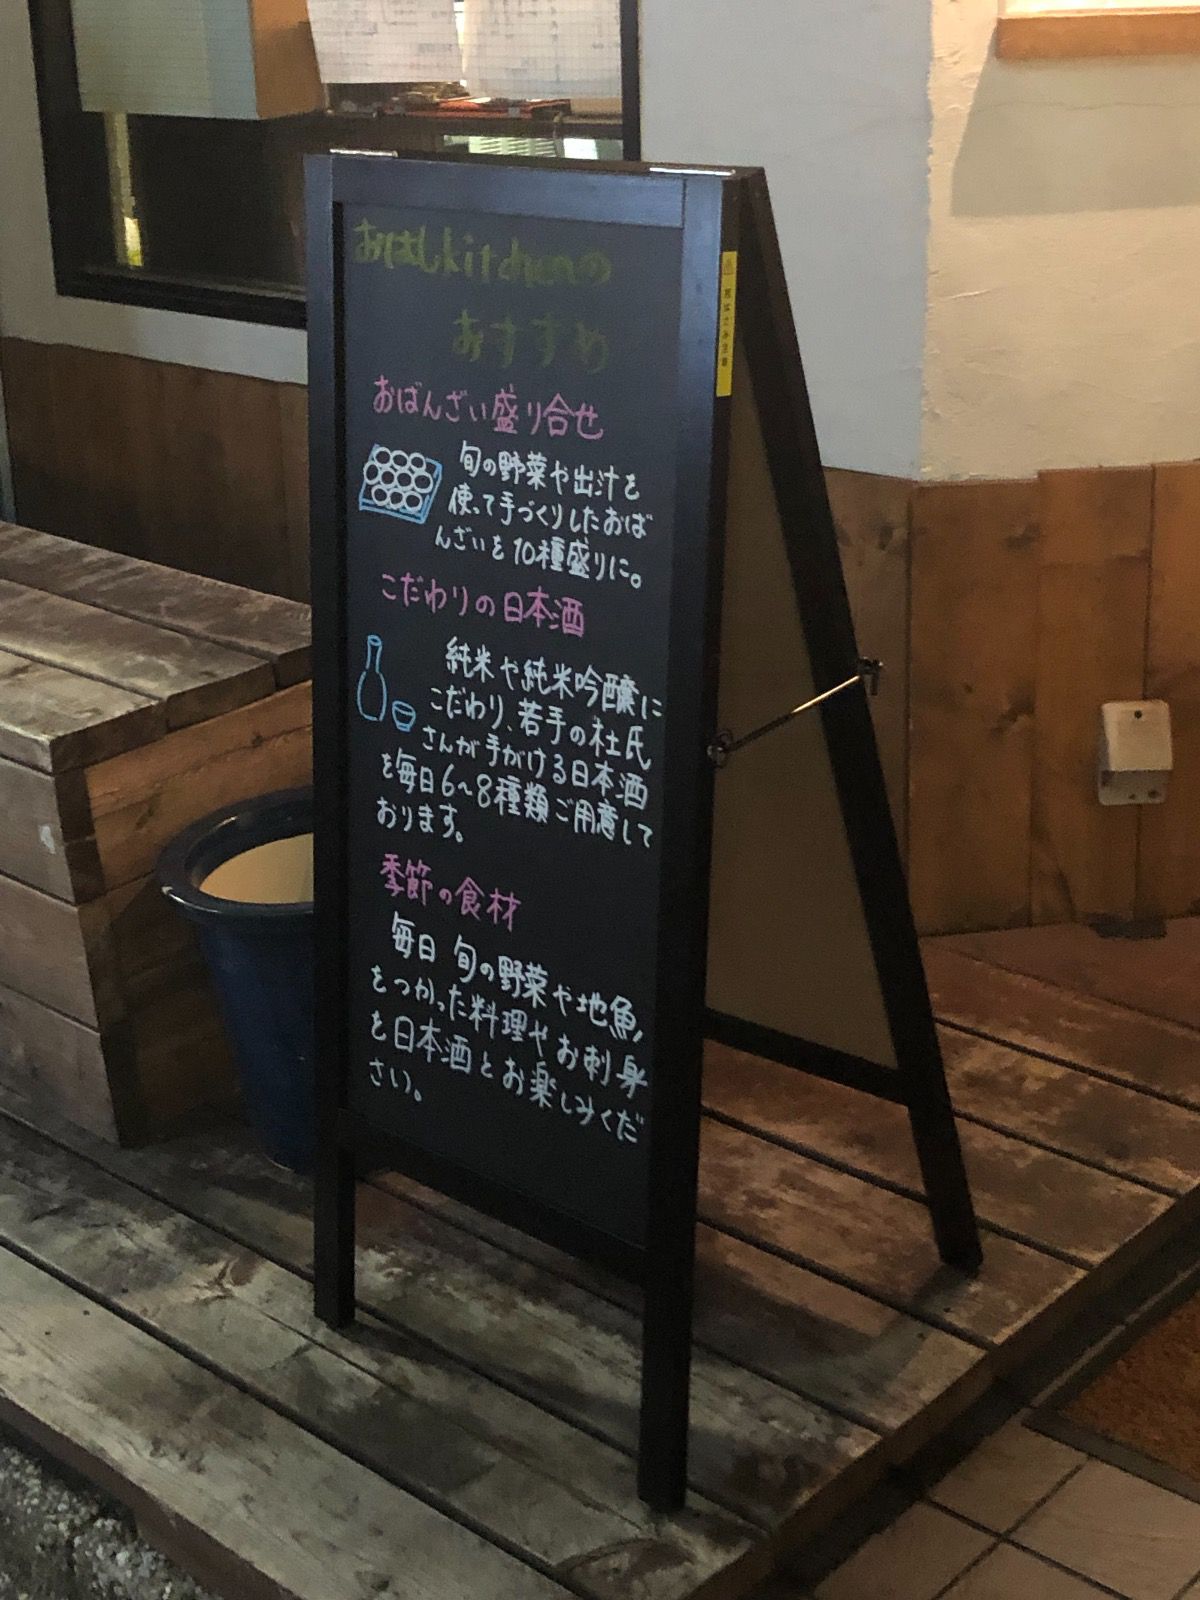 おはしkitchenの
おすすめ
おばんざい盛り合せ
旬の野菜や出汁を
使って手づくりしたおば
んざいを10種盛りに。
こだわりの日本酒
純米や純米吟醸に
こだわり、若手の杜氏
さんが手がける日本酒
を毎日6~8種類ご用意して
おります。
季節の食材
毎日 旬の野菜や地魚
をつかった料理やお刺身
を日本酒とお楽しみくだ
さい。